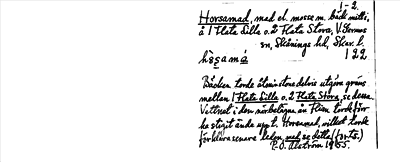 1-2.
Horsamad, mad el. mosse m. bäck mitti,
å 1 Flata Lilla o. 2 Flata Stora, V. Gerums
sn, Skånings hd, Skar. l.
122
hò̀såmá
Bäcken torde åtminstone delvis utgöra gräns
mellan 1 Flata Lilla o. 2 Flata Stora, se dessa.
Vattnet i den närbelägna ån Flian torde för
ha stigit ända upp t. Horsamad, vilket torde
förklara senare leden mad, se detta (forts.)
P.O. Alström 1955.